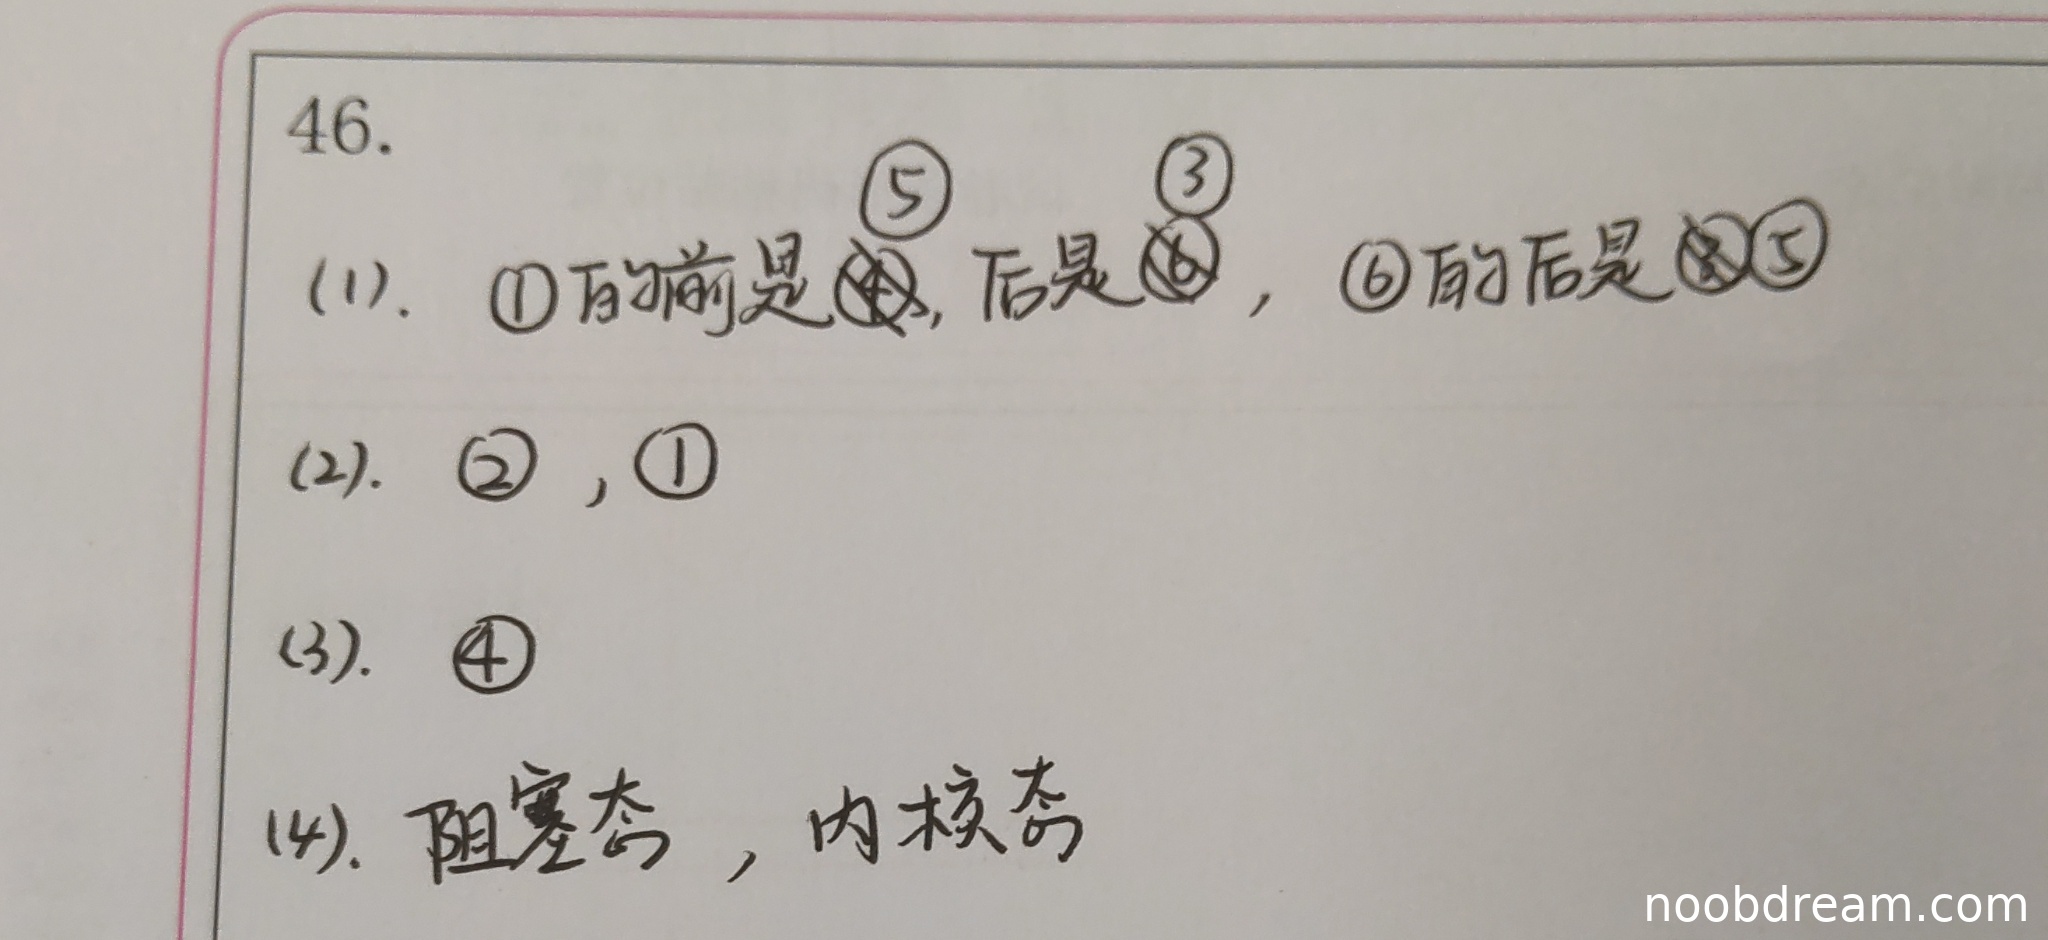 46.
(1). ①的前是⑤, 后是③, ⑥的后是⑤
(2). ②, ①
(3). ④
(4). 阻塞态, 内核态
noobdream.com